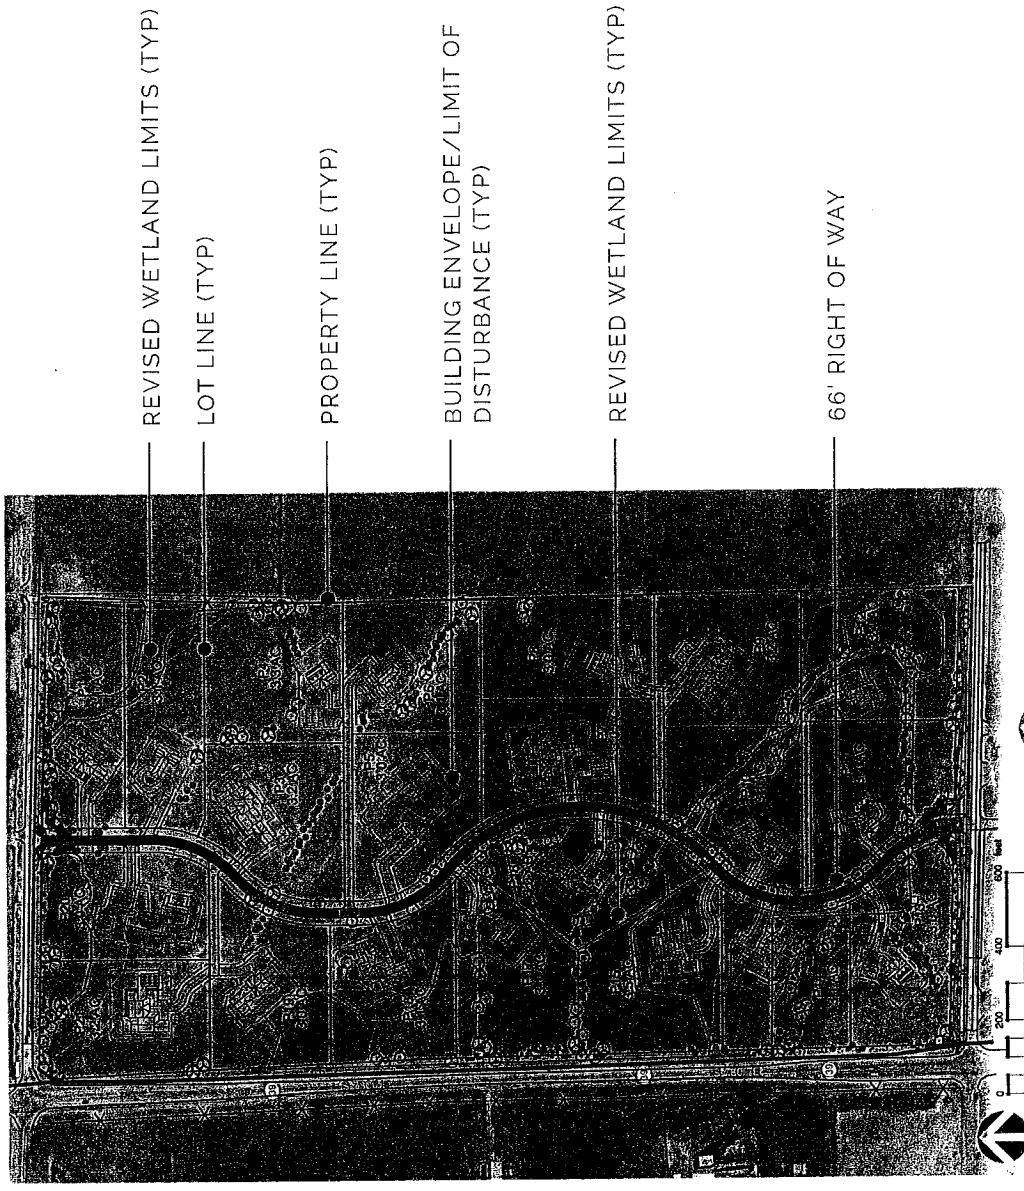 REVISED WETLAND LIMITS (TYP)
LOT LINE (TYP)
PROPERTY LINE (TYP)
BUILDING ENVELOPE/LIMIT OF
DISTURBANCE (TYP)
REVISED WETLAND LIMITS (TYP)
66' RIGHT OF WAY
0
200
400
600
feet